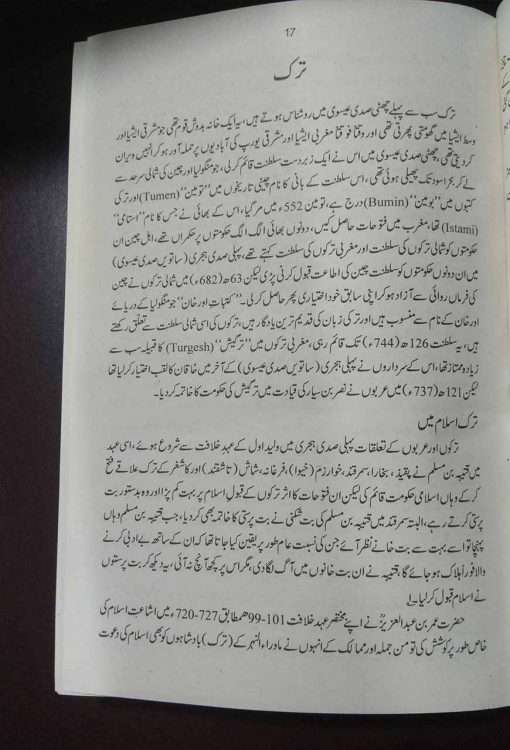 17
ترک
ترک سب سے پہلے چھٹی صدی عیسوی میں روشناس ہوتے ہیں، یہ ایک خانہ بدوش قوم تھی جو مشرقی ایشیا اور
وسط ایشیا میں گھومتی پھرتی تھی اور وقتاً فوقتاً مغربی ایشیا اور مشرقی یورپ کی آبادیوں پر حملہ آور ہو کر انہیں ویران
کر دیتی تھی، چھٹی صدی عیسوی میں اس نے ایک زبردست سلطنت قائم کر لی، جو منگولیا اور چین کی شمالی سرحد سے
لے کر بحر اسود تک پھیلی ہوئی تھی، اس سلطنت کے بانی کا نام چینی تاریخوں میں "تومین" (Tumen) اور ترکی
کتبوں میں "بومین" (Bumin) درج ہے، تومین 552ء میں مر گیا، اس کے بھائی نے جس کا نام "استامی"
(Istami) تھا، مغرب میں فتوحات حاصل کیں، دونوں بھائی الگ الگ حکومتوں پر حکمراں تھے، اہل چین ان
حکومتوں کو شمالی ترکوں کی سلطنت اور مغربی ترکوں کی سلطنت کہتے تھے، پہلی صدی ہجری (ساتویں صدی عیسوی)
میں ان دونوں حکومتوں کو سلطنت چین کی اطاعت قبول کرنی پڑی لیکن 63ھ (682ء) میں شمالی ترکوں نے چین
کی فرماں روائی سے آزاد ہو کر اپنی سابق خود اختیاری پھر حاصل کر لی۔ "کتبات اورخان" جو منگولیا کے دریائے
اورخان کے نام سے منسوب ہیں اور ترکی زبان کی قدیم ترین یادگار ہیں، ترکوں کی اسی شمالی سلطنت سے تعلق رکھتے
ہیں، یہ سلطنت 126ھ (744ء) تک قائم رہی، مغربی ترکوں میں "ترگیش" (Turgesh) کا قبیلہ سب سے
زیادہ ممتاز تھا، اس کے سرداروں نے پہلی ہجری (ساتویں صدی عیسوی) کے آخر میں خاقان کا لقب اختیار کر لیا تھا
لیکن 121ھ (737ء) میں عربوں نے نصر بن سیار کی قیادت میں ترگیش کی حکومت کا خاتمہ کر دیا۔
ترک اسلام میں
ترکوں اور عربوں کے تعلقات پہلی صدی ہجری میں ولید اول کے عہد خلافت سے شروع ہوئے، اسی عہد
میں قتیبہ بن مسلم نے بخارا، سمرقند، خوارزم (خیوا)، فرغانہ، شاش (تاشقند) اور کاشغر کے ترک علاقے فتح
کر کے وہاں اسلامی حکومت قائم کی لیکن ان فتوحات کا اثر ترکوں کے قبول اسلام پر بہت کم پڑا اور وہ بدستور بت
پرستی کرتے رہے، البتہ سمرقند میں قتیبہ بن مسلم کی بت شکنی نے بت پرستی کا خاتمہ بھی کر دیا، جب قتیبہ بن مسلم وہاں
پہنچا تو اسے بہت سے بت خانے نظر آئے جن کی نسبت عام طور پر یقین کیا جاتا تھا کہ ان کے ساتھ بے ادبی کرنے
والا فوراً ہلاک ہو جائے گا، قتیبہ نے ان بت خانوں میں آگ لگا دی، مگر اس پر کچھ آنچ نہ آئی، یہ دیکھ کر بت پرستوں
نے اسلام قبول کر لیا۔
حضرت عمر بن عبدالعزیزؒ نے اپنے مختصر عہد خلافت 101-99ھ مطابق 727-720ء میں اشاعت اسلام کی
خاص طور پر کوشش کی تو من جملہ اور ممالک کے انہوں نے ماوراء النہر کے (ترک) بادشاہوں کو بھی اسلام کی دعوت